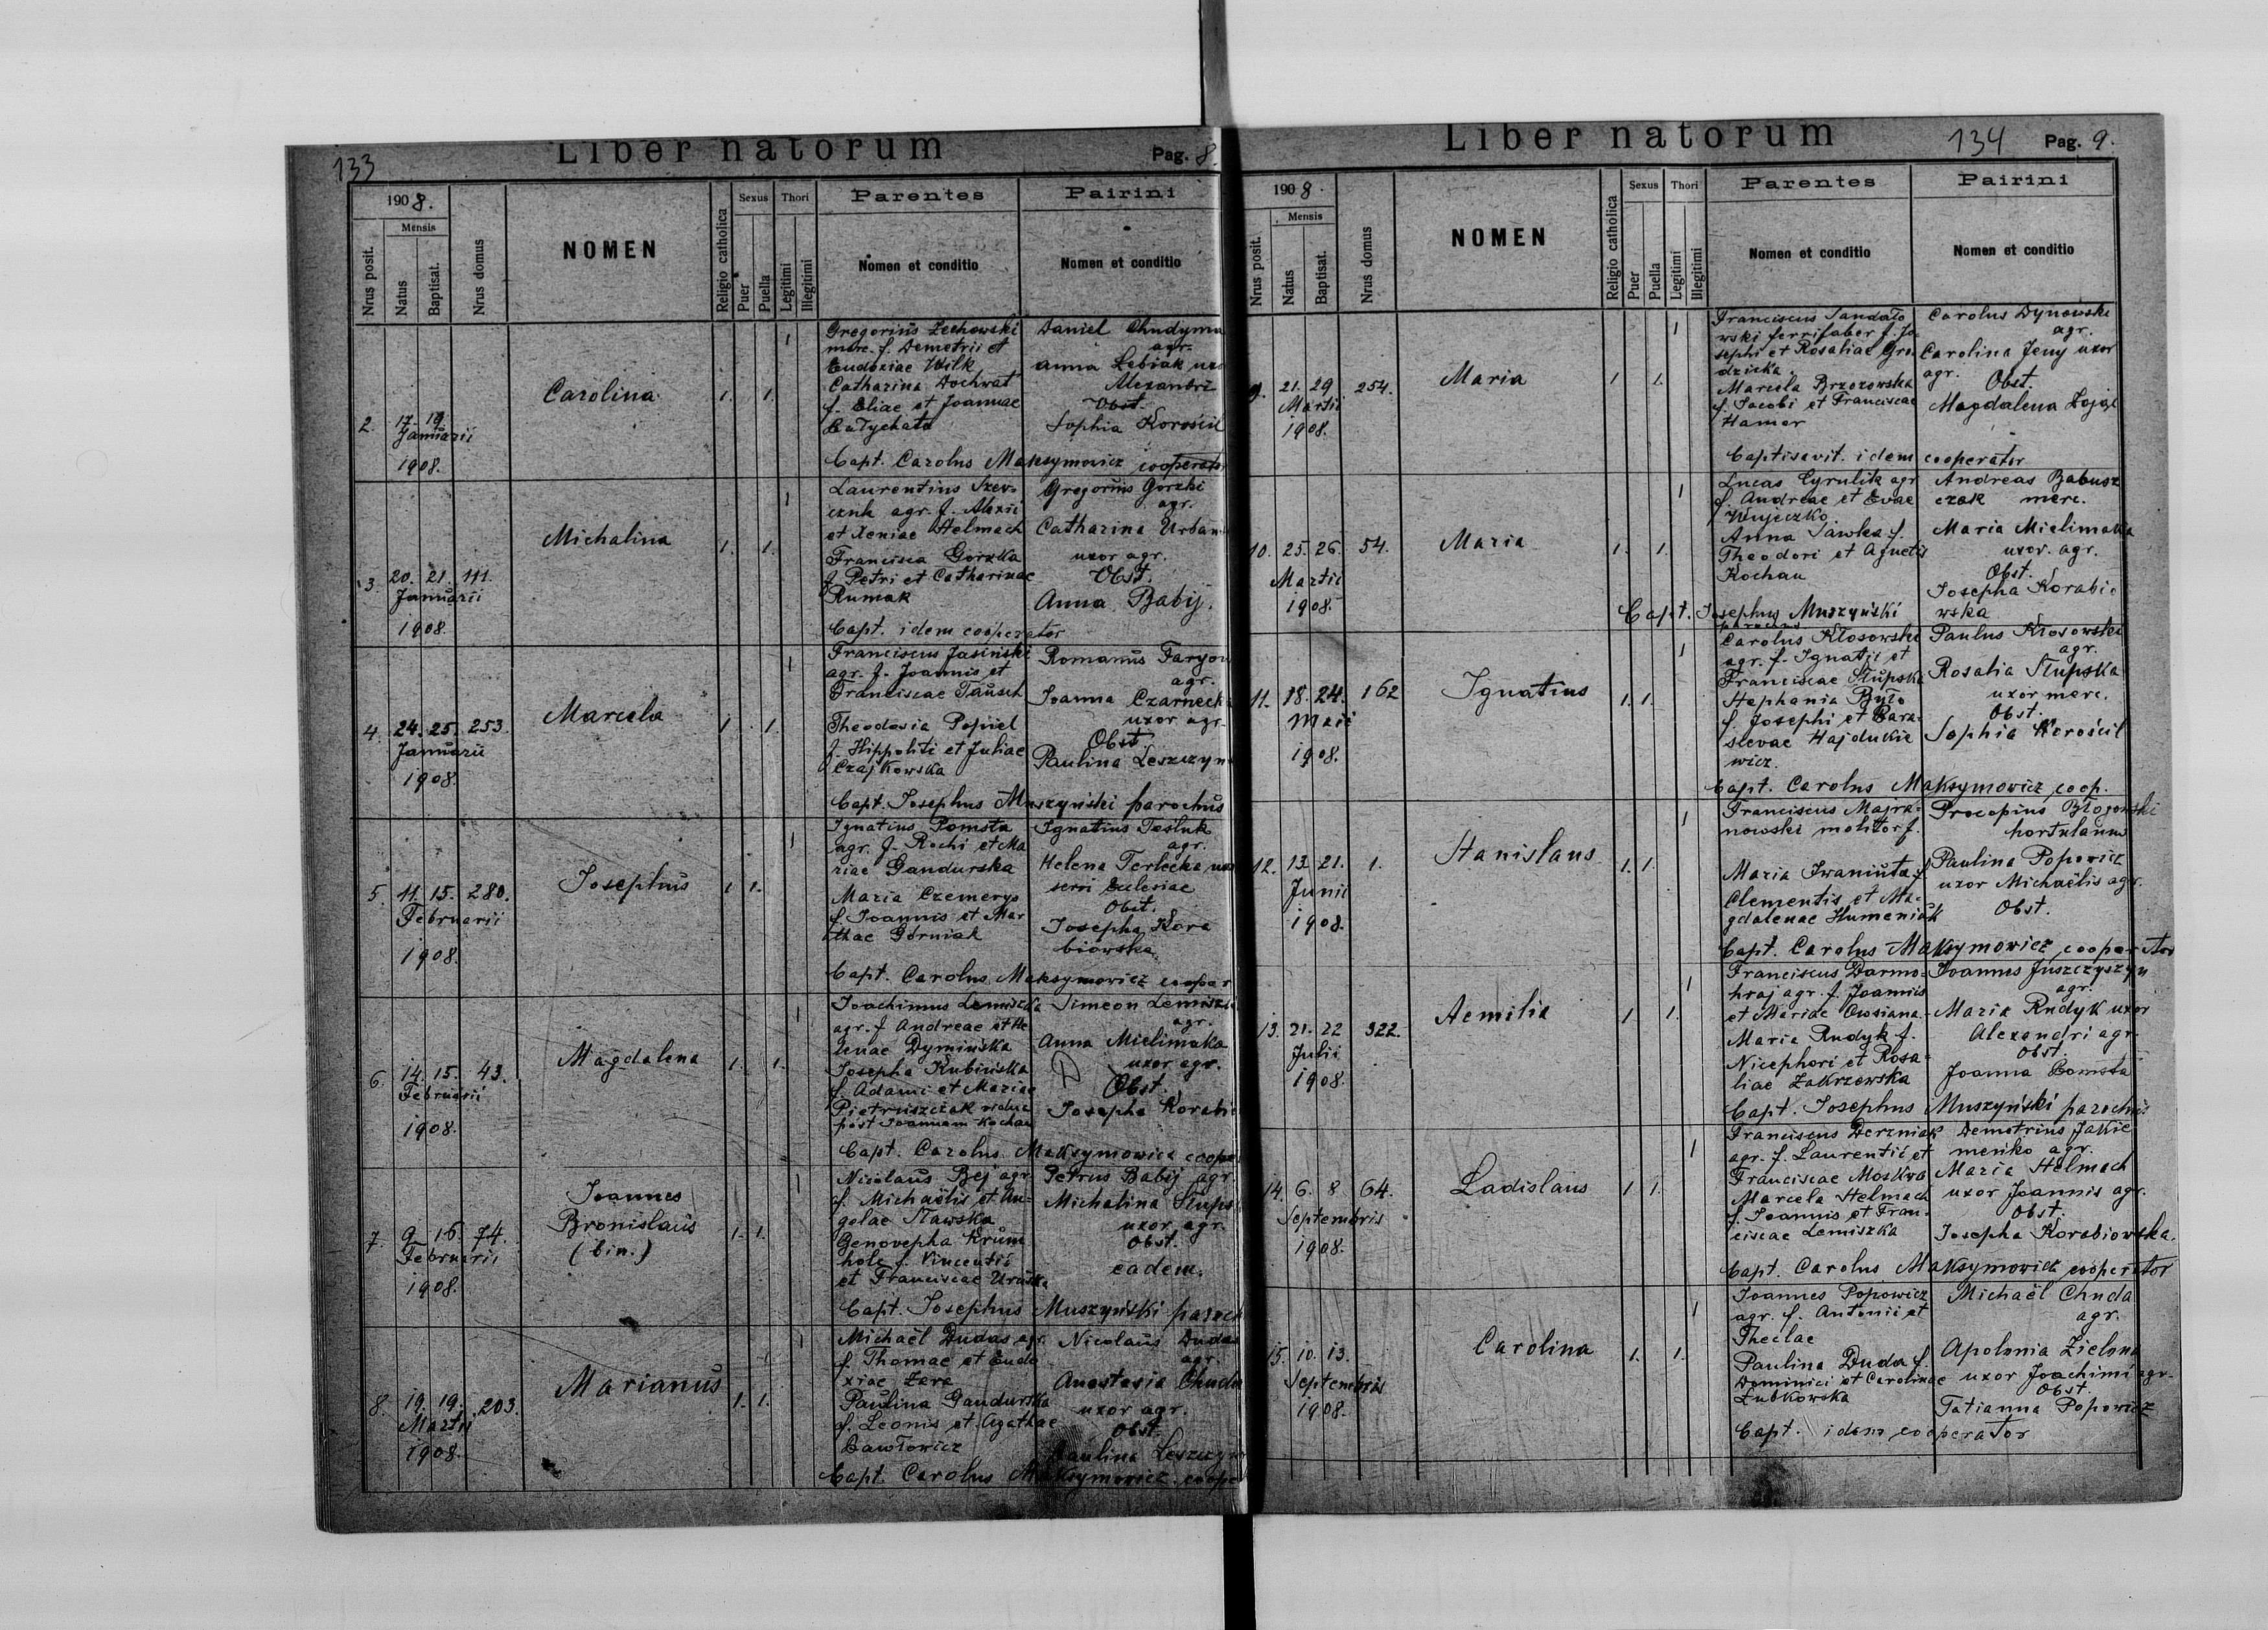 133
Liber natorum
Pag. 8.
1908.
Mensis
Nrus posit.
Natus
Baptisat.
Nrus domus
NOMEN
Religio catholica
Sexus
Puer
Puella
Thori
Legitimi
Illegitimi
Parentes
Nomen et conditio
Pairini
Nomen et conditio
2. 17. 19.
Januarii
1908.
Carolina
1. 1. 1
Gregorius Lechowski
merc. f. Demetrii et
Eudoxiae Wilk
Catharina Dochwat
f. Eliae et Joannae
Bałychata
Daniel Chudyma
agr.
Anna Lebiak
Alexandri
Obst.
Sophia Korościl
Bapt. Carolus Maksymowicz cooperator
3. 20. 21. 111.
Januarii
1908.
Michalina
1. 1. 1
Laurentius Szew-
czuk agr. f. Alexii
et Xeniae Helmach
Francisca Gorzka
f. Petri et Catharinae
Rumak
Gregorius Gorzki
agr.
Catharina Urban
uxor agr.
Obst.
Anna Babij.
Bapt. idem cooperator
4. 24. 25. 253.
Januarii
1908.
Marcela
1. 1. 1
Franciscus Jasiński
agr. f. Joannis et
Franciscae Tausch
Theodosia Popiel
f. Hippoliti et Juliae
Czajkowska
Romanus Faryon
agr.
Joanna Czarnecka
uxor agr.
Obst.
Paulina Leszczyn
Bapt. Josephus Muszyński parochus
5. 11. 15. 280.
Februarii
1908.
Josephus
1. 1. 1
Ignatius Pomsta
agr. f. Rochi et Ma
riae Gandurska
Maria Czemerys
f. Joannis et Mar
thae Górniak
Ignatius Tesluk
agr.
Helena Terlecka
servi Eclesiae
Obst.
Josepha Kora
biowska
Bapt. Carolus Maksymowicz cooper
6. 14. 15. 43.
Februarii
1908.
Magdalena
1. 1. 1
Joachimus Lemiszka
agr. f. Andreae et He
lenae Dymińska
Josepha Kubińska
f. Adami et Mariae
Pietruszczak vidua
post Joannem Kochan
Simeon Lemiszka
agr.
Anna Mielimaka
uxor agr.
Obst.
Josepha Korabio
Bapt. Carolus Maksymowicz cooper
7. 9. 16. 74.
Februarii
1908.
Joannes
Bronislaus
(bin.)
1. 1. 1
Nicolaus Bej agr.
f. Michaëlis et An-
gelae Sławska
Genovepha Krum
holc f. Vincentii
et Franciscae
Petrus Babij agr.
Michalina Słups
uxor agr.
Obst.
eadem.
Bapt. Josephus Muszyński paroch
8. 19. 19. 203.
Martii
1908.
Marianus
1. 1. 1
Michaël Dudas agr.
f. Thomae et Eudo
xiae Zara
Paulina Gandurska
f. Leonis et Agathae
Dawłowicz
Nicolaus Dudas
agr.
Anastasia Chuda
uxor agr.
Obst.
Paulina Leszczyn
Bapt. Carolus Maksymowicz cooper
Liber natorum
134
Pag. 9.
1908.
Mensis
Nrus posit.
Natus
Baptisat.
Nrus domus
NOMEN
Religio catholica
Sexus
Puer
Puella
Thori
Legitimi
Illegitimi
Parentes
Nomen et conditio
Pairini
Nomen et conditio
9. 21. 29 254.
Martii
1908.
Maria
1. 1. 1
Franciscus Sandało
wski ferrifaber f. Jo
sephi et Rosaliae Gro
dzicka.
Marcela Brzozowska
f. Jacobi et Franciscae
Hamer
Carolus Dynowski
agr.
Carolina Jeny uxor
agr.
Obst.
Magdalena
Baptisavit idem cooperator
10. 25. 26. 54.
Martii
1908.
Maria
1. 1. 1
Lucas Cyrulik agr
f. Andreae et Evae
Wujeczko
Anna Sawka f.
Theodori et Agnetis
Kochan
Andreas Babusz
czak merc.
Maria Mielimaka
uxor. agr.
Obst.
Josepha Korabio
wska
Bapt. Josephus Muszyński
parochus
11. 18. 24. 162
Maii
1908.
Ignatius
1. 1. 1
Carolus Kłosowski
agr. f. Ignatii et
Franciscae Słupska
Stephania Było
f. Josephi et Para-
scevae Hajdukie
wicz.
Paulus Kłosowski
agr.
Rosalia Słupska
uxor merc.
Obst.
Sophia Korościl
Bapt. Carolus Maksymowicz coop.
12. 13. 21. 1.
Junii
1908.
Stanislaus
1. 1. 1
Franciscus Majra-
nowski molitor f.
Maria Iwaniuta f.
Clementis et Ma-
gdalenae Humeniuk
Procopius Błogowski
hortulanus
Paulina Popowicz
uxor Michaëlis agr.
Obst.
Bapt. Carolus Maksymowicz cooperator
13. 21. 22 322.
Julii
1908.
Aemilia
1. 1. 1
Franciscus Darmo-
hraj agr. f. Joannis
et Mariae Owsiana.
Maria Rudyk f.
Nicephori et Rosa-
liae Zakrzewska
Joannes Juszczyszyn
agr.
Maria Rudyk uxor
Alexandri agr.
Obst.
Joanna Pomsta
Bapt. Josephus Muszyński parochus
14. 6. 8 64.
Septembris
1908.
Ladislaus
1. 1. 1
Franciscus Derzniak
agr. f. Laurentii et
Franciscae Moskwa
Marcela Helmach
f. Joannis et Fran-
ciscae Lemiszka
Demetrius Jakie
menko agr.
Maria Helmach
uxor Joannis agr.
Obst.
Josepha Korabiowska.
Bapt. Carolus Maksymowicz cooperator
15. 10. 13.
Septembris
1908.
Carolina
1. 1. 1
Joannes Popowicz
agr. f. Antonii et
Theclae
Paulina Duda f.
Dominici et Carolinae
Zubkowska
Michaël Chuda
agr.
Apolonia Zielona
uxor Joachimi agr.
Obst.
Tatianna Popowicz
Bapt. idem cooperator